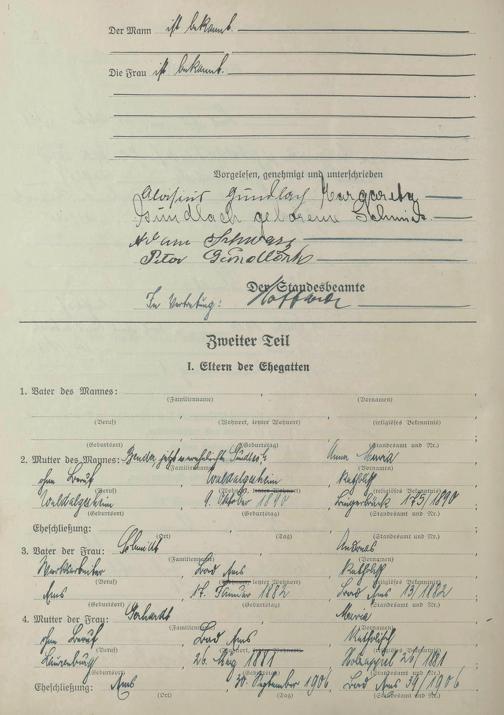 Der Mann ist bekannt.
Die Frau ist bekannt.
Vorgelesen, genehmigt und unterschrieben
Aloisius Gundlach Margareta
Gundlach geborene Schmidt
Peter Gundlach
Der Standesbeamte
In Vertretung:
Zweiter Teil
I. Eltern der Ehegatten
1. Vater des Mannes:
(Familienname) (Vornamen)
(Beruf) (Wohnort, letzter Wohnort) (religiöses Bekenntnis)
(Geburtsort) (Geburtstag) (Standesamt und Nr.)
2. Mutter des Mannes: Anna Maria
(Familienname) (Vornamen)
ohne Beruf Waldalgesheim katholisch
(Beruf) (religiöses Bekenntnis)
Waldalgesheim 9. Oktober 1890 175/1890
(Geburtsort) (Geburtstag) (Standesamt und Nr.)
Eheschließung:
(Ort) (Tag) (Standesamt und Nr.)
3. Vater der Frau: Schmidt Andreas
(Familienname) (Vornamen)
Bad Ems katholisch
(Beruf) letzter Wohnort) (religiöses Bekenntnis)
Ems 17. Januar 1882 Bad Ems 13/1882
(Geburtsort) (Geburtstag) (Standesamt und Nr.)
4. Mutter der Frau: Gerhardt Maria
(Familienname) (Vornamen)
ohne Beruf Bad Ems katholisch
(Beruf) (religiöses Bekenntnis)
Laurenburg 26. 1881 26/1881
(Geburtsort) (Geburtstag) (Standesamt und Nr.)
Eheschließung: Ems September 1906, Bad Ems 39/1906
(Ort) (Tag) (Standesamt und Nr.)